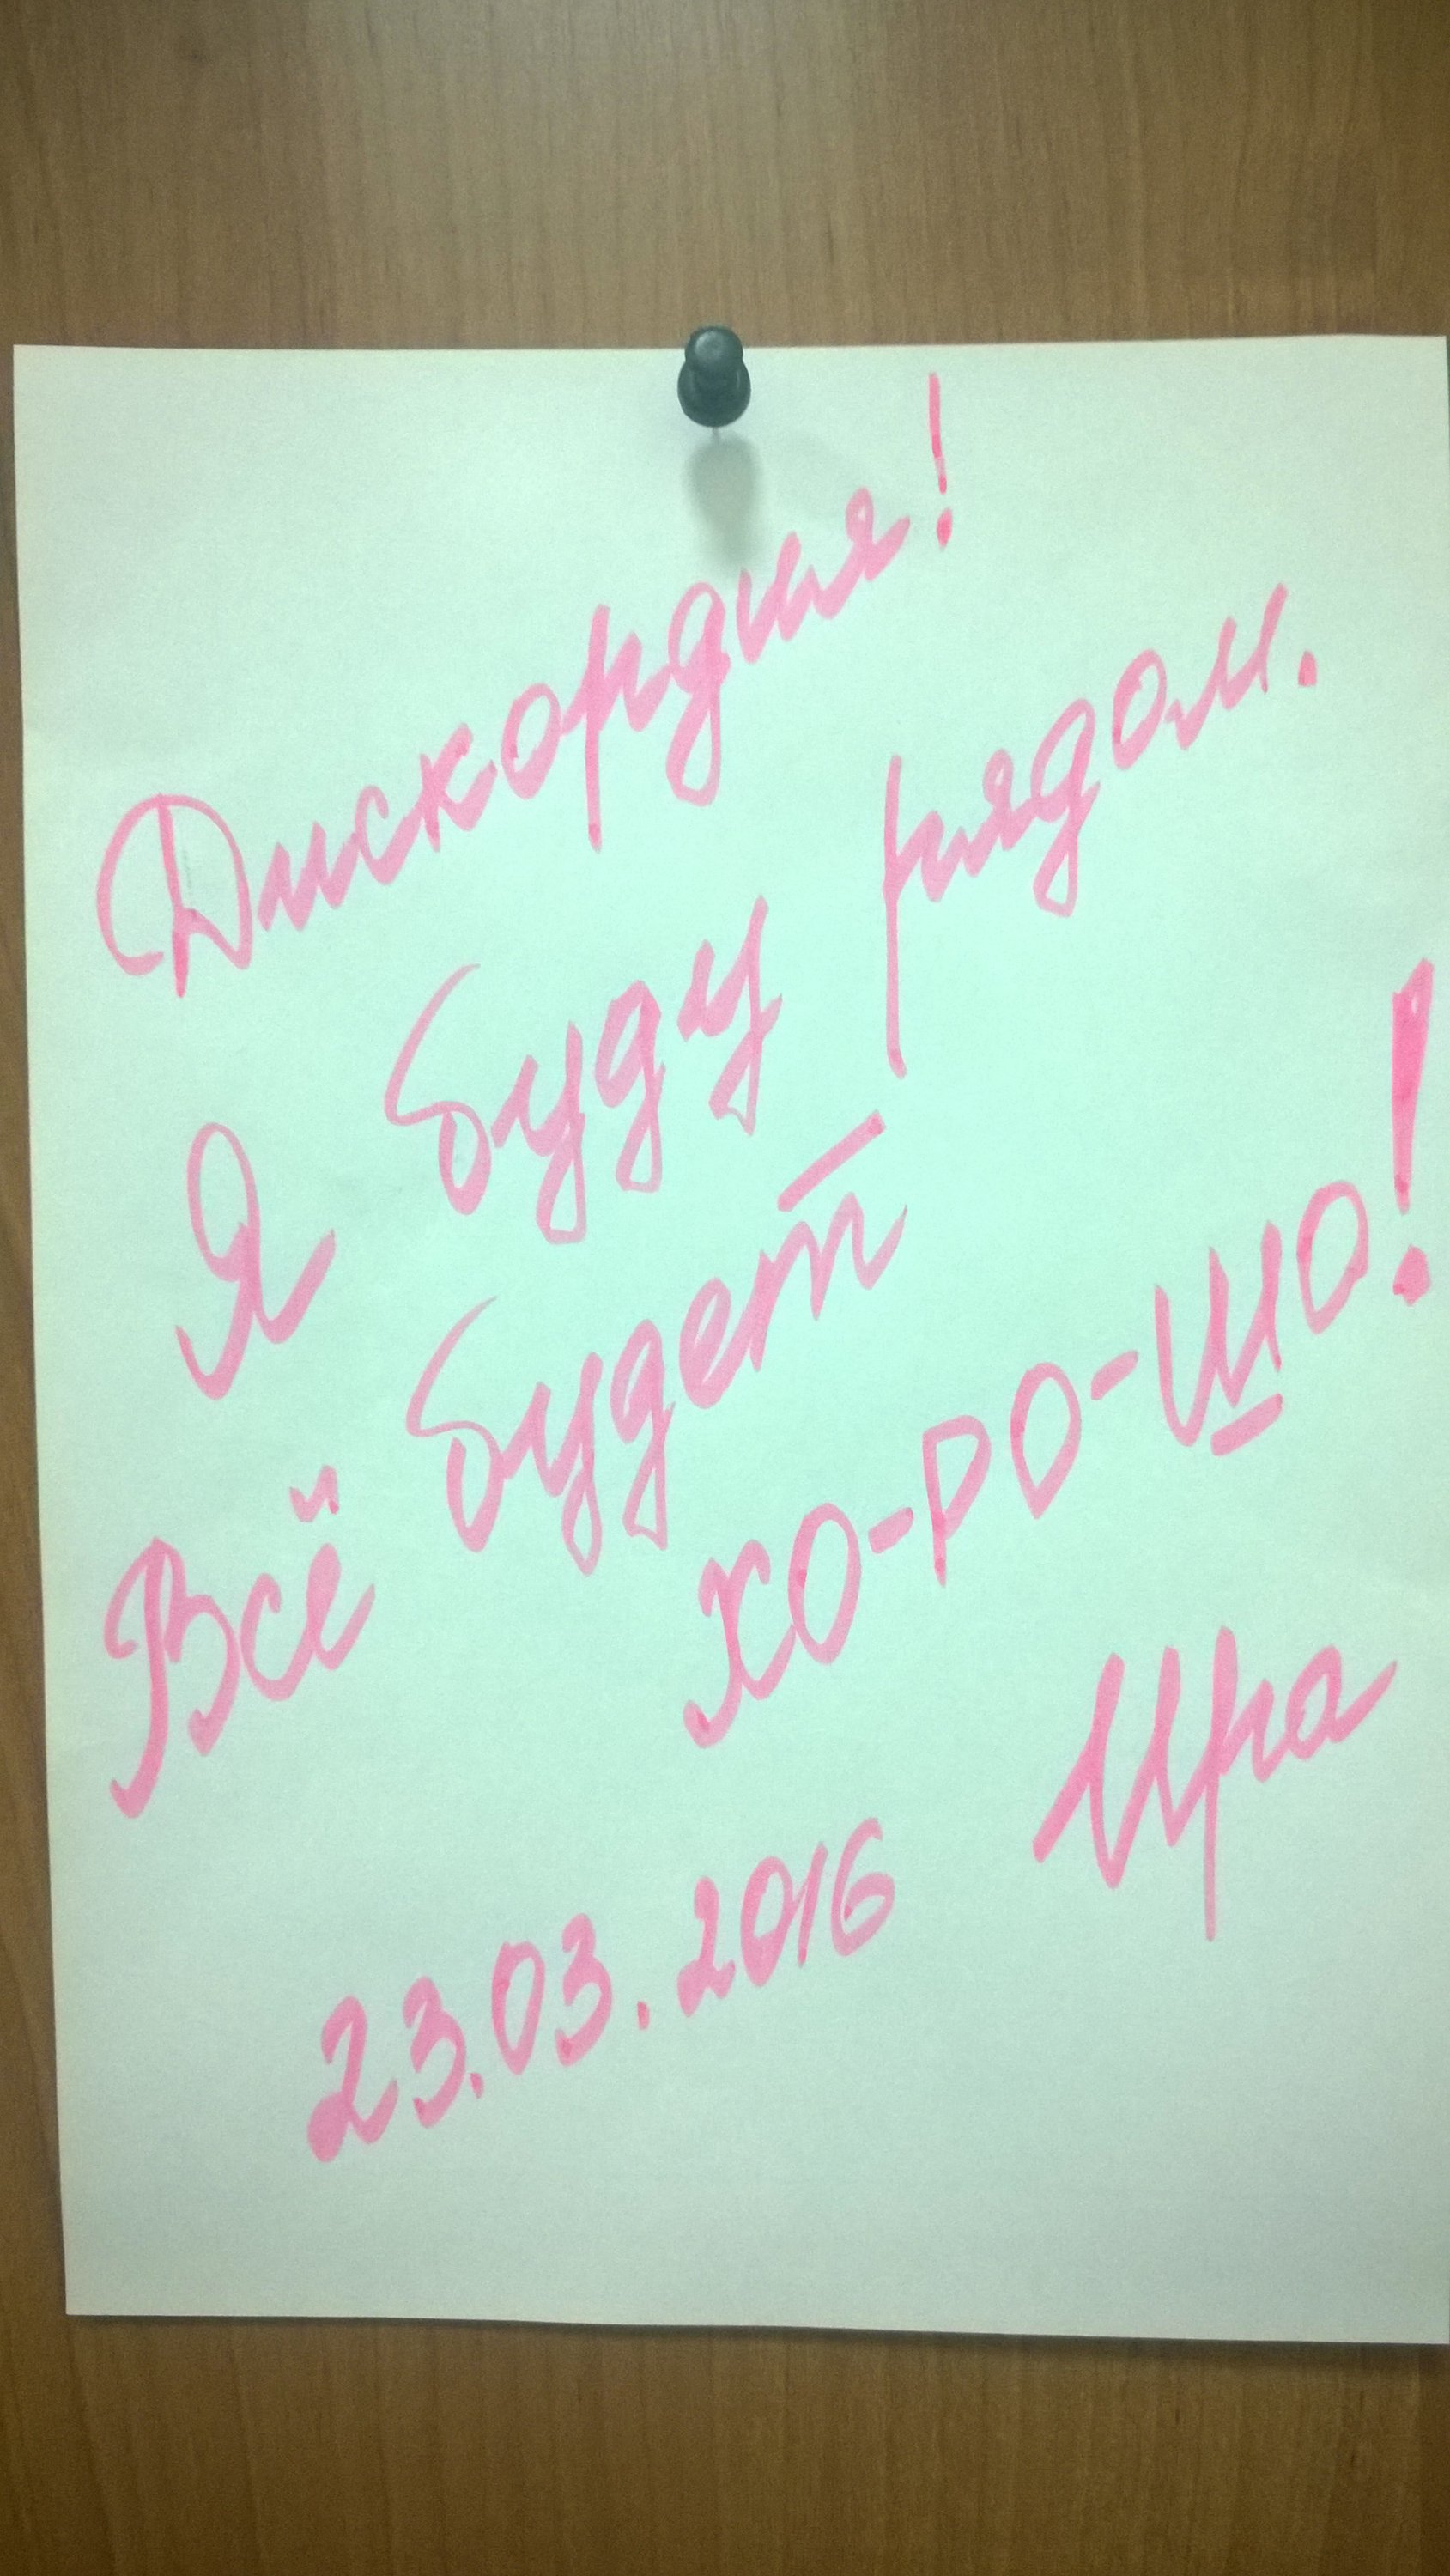 Дискордия!
Я буду рядом.
Всё будет
ХО-РО-ШО!
Ира
23.03.2016